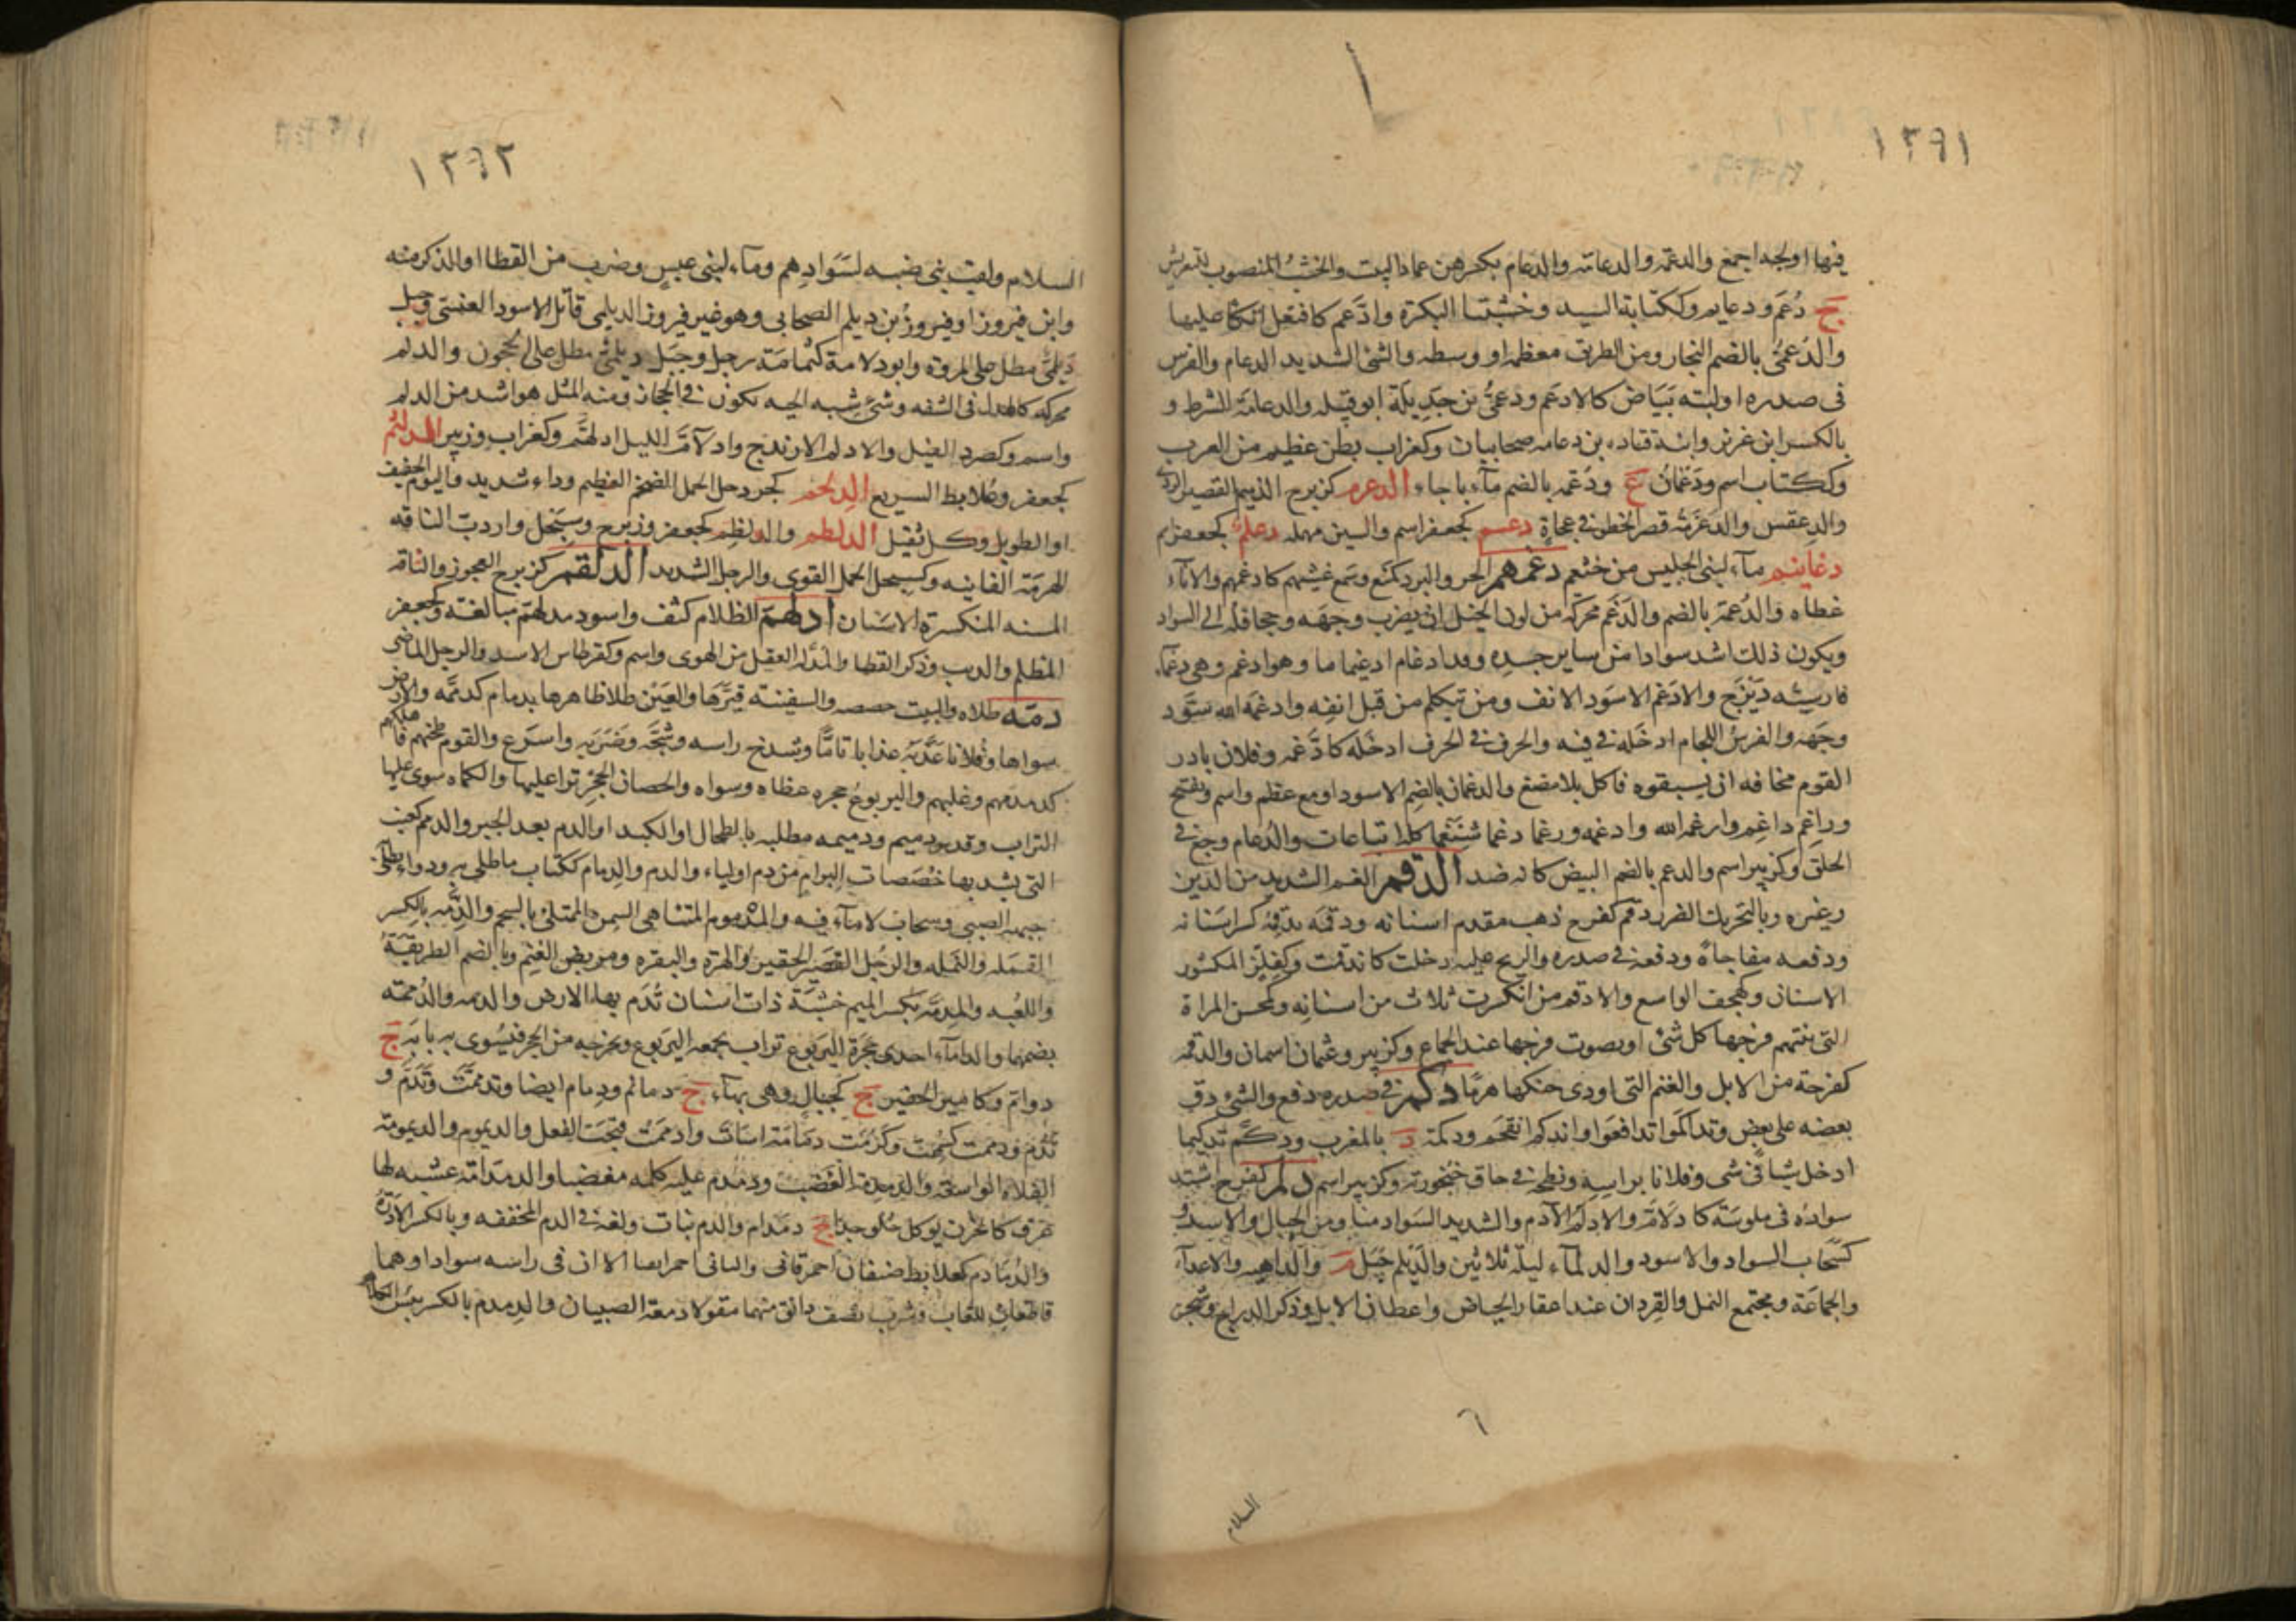 ١٣٦١
فيها اوجه اجمع والدعمة والدعامة والدعام بكسرهن عماد البيت والخشب المنصوب للتعريش
ج دُعَم ودعايم وككتابة السيد وخشبتا البكرة وادَّعم كافتعل اتكأ عليها
والدُعميُّ بالضم النجار ومن الطريق معظمه او وسطه والشئ الشديد الدعام والفرس
فى صدره او لبته بَيَاض كالادعم ودعميُّ بن جَدِيلة ابو قبيلة والدعامة الشرط و
بالكسر ابن غزية وابنة قتادة بن دعامه صحابيان وكغراب بطن عظيم من العرب
وككتاب اسم ودَعْمَانُ ع ودَعْمه بالضم مآء باجاء الدعرم كزبرج الذميم القصير الردى
والدِعقس والدَعرَمة قصر الخطو فى عجلة دعسم كجعفر اسم والسين مهمله دعلم كجعفر اسم
دغانيم مآء لبنى الحليس من خثعم دغمهم الحر والبرد كمنع وسمع غشيهم كادغمهم والانآء
غطاه والدُغمة بالضم والدَغَم محركة من لون الخيل ان يضرب وجهه وجحافله الى السواد
ويكون ذلك اشد سوادا من ساير جسده وقد ادغام ادغيماما وهو ادغم وهى دغمآء
فارسيته دَيْزَج والادغم الاسود الانف ومن يتكلم من قبل انفه وادغمه الله سَوَّد
وجهه والفرسَ اللجام ادخله فى فيه والحرف فى الحرف ادخله كادَّغمه وفلان بادر
القوم مخافه ان يسبقوه فاكل بلا مضغ والدغمان بالضم الاسود او مع عظم واسم ويفتح
وراغم داغم وارغمه الله وادغمه ورغما دغما شِنَّغما كلها اتباعات والدُغام وجع فى
الحلق وكزبير اسم والدغم بالضم البيض كانه ضد الدقم الغم الشديد من الدين
وغيره وبالتحريك الضرر دقم كفرح ذهب مقدم اسنانه ودقمه يدقمه كسر اسنانه
ودفعه مفاجأة ودفعه فى صدره والريح عليه دخلت كاندقمت وكفِلِزّ المكسور
الاسنان وكهجف الواسع والادقم من انكسرت ثلاث من اسنانه وكمحسن المراة
التى يلتهم فرجها كل شئ او يصوت فرجها عند الجماع وكزبير وعثمان اسمان والدقمة
كفرحة من الابل والغنم التى اودى حنكها هرمًا دكم فى صدره دفع والشئ دق
بعضه على بعض وتداكَموا تدافعَوا واندكم انقحم ودكمة د بالمغرب ودكَّم تدكيما
ادخل شيأ فى شى وفلانا براسه ونطحه فى حاق خنجورته وكزبير اسم دلم كفرح اشتد
سواده فى ملوسة كادلامَّ والادلم الآدم والشديد السواد منا ومن الجبال والاسد و
كسَحَاب السواد والاسود والدلمآء ليلة ثلاثين والدَيْلم جَبَل م والداهيه والاعدآء
والجماعة ومجتمع النمل والقِردان عند اعقار الحياض واعطان الابل وذكر الدراج وشجر
السلام
١٣٦٢
السلام ولقب بنى ضبه لسَوادِهم ومآء لبنى عبس وضرب من القطا او الذكر منه
وابن فيروز او فيروز بن ديلم الصحابى وهو غير فيروز الديلمى قاتل الاسود العنسى وجبل
دَيلميٌّ مطل على المروة وابو دلامة كثُمامَة رجل وجَبَل ديلميٌّ مطل على الحُجُون والدلم
محركه كالهدل فى الشفه وشئ شبه الحيه يكون فى الحجاز ومنه المثل هو اشد من الدلم
واسم وكصرد الفيل والادلم الارندج وادلآمَّ الليل ادلهمَّ وكغراب وزبير الدلثم
كجعفر وعُلابط السريع الدلخم كجردحل الجمل الضخم العظيم وداء شديد واليوم الخفيف
او الطويل وكل ثقيل الدلطم والدلظم كجعفر وزبرج وسِبَحْل واردبّ الناقه
الهرمة الفانيه وكسبحل الجمل القوى والرجل الشديد الدلقم كزبرج العجوز والناقه
المسنه المنكسرة الاسنان ادلهمّ الظلام كثف واسود مدلهم مبالغة وكجعفر
المظلم والذيب وذكر القطا والمدله العقل من الهوى واسم وكقرطاس الاسد والرجل الماضى
دمّه طلاه والبيت جصصه والسفينة قيَّرها والعَيْن طلا ظاهرها بدمام كدمَّمه والارض
سواها وفلانا عذَّبه عذابا تامًّا وشدخ راسه وشجَّه وضربه واسرع والقوم طحنهم فاهلكهم
كدمدمهم وعليهم واليربوعُ جحره غطاه وسواه والحصان الحِجْر نزا عليها والكماه سوى عليها
التراب وقدر دميم ودميمه مطليه بالطحال او الكبد او الدم بعد الجبر والدمم كعنب
التى يشد بها خصاصات البرام من دم او لباء والدم والدمام ككتاب ما طلى به ودواء يطلى
جبهه الصبى وسحاب لا مآء فيه والمدموم المتناهى السمن الممتلئ بالشحم والدِمَّة بالكسر
القمله والنمله والرجل القصير الحقير والهرة والبعره ومربض الغنم وبالضم الطريقة
واللعبه والمِدمّة بكسر الميم خشبة ذات اسنان تُدَم بها الارض والدمه والدُممه
بضمهما والدامآء احدى جحرة اليربوع وتراب يجمعه اليربوع ويخرجه من الجحر فيُسَوى به بابه ج
دوامّ وكامير الحقير ج كجبال وهى بهآء ج دمائم ودِمام ايضا وقد دممتَ تدِمّ و
تدُمّ ودممت كشممت وكرُمت دمَامَة اسَات وادممت قبحت الفعل والديموم والديمومة
الفلاه الواسعة والدمدمة الغَضَب ودمدم عليه كلمه مغضبا والدمدامة عشبه لها
عرق كالجزر يوكل حُلو جدا ج دمدام والدم نبات ولغه فى الدم المخففه وبالكسر الادرة
والدُمادم كعُلابط صنفان احمر قانى والثانى احمر ايضا الا ان فى راسه سوادا وهما
قاطعان للعاب وشرب نصف دانق منهما مقو لادمغة الصبيان والدِمدم بالكسر يبس الكلاء